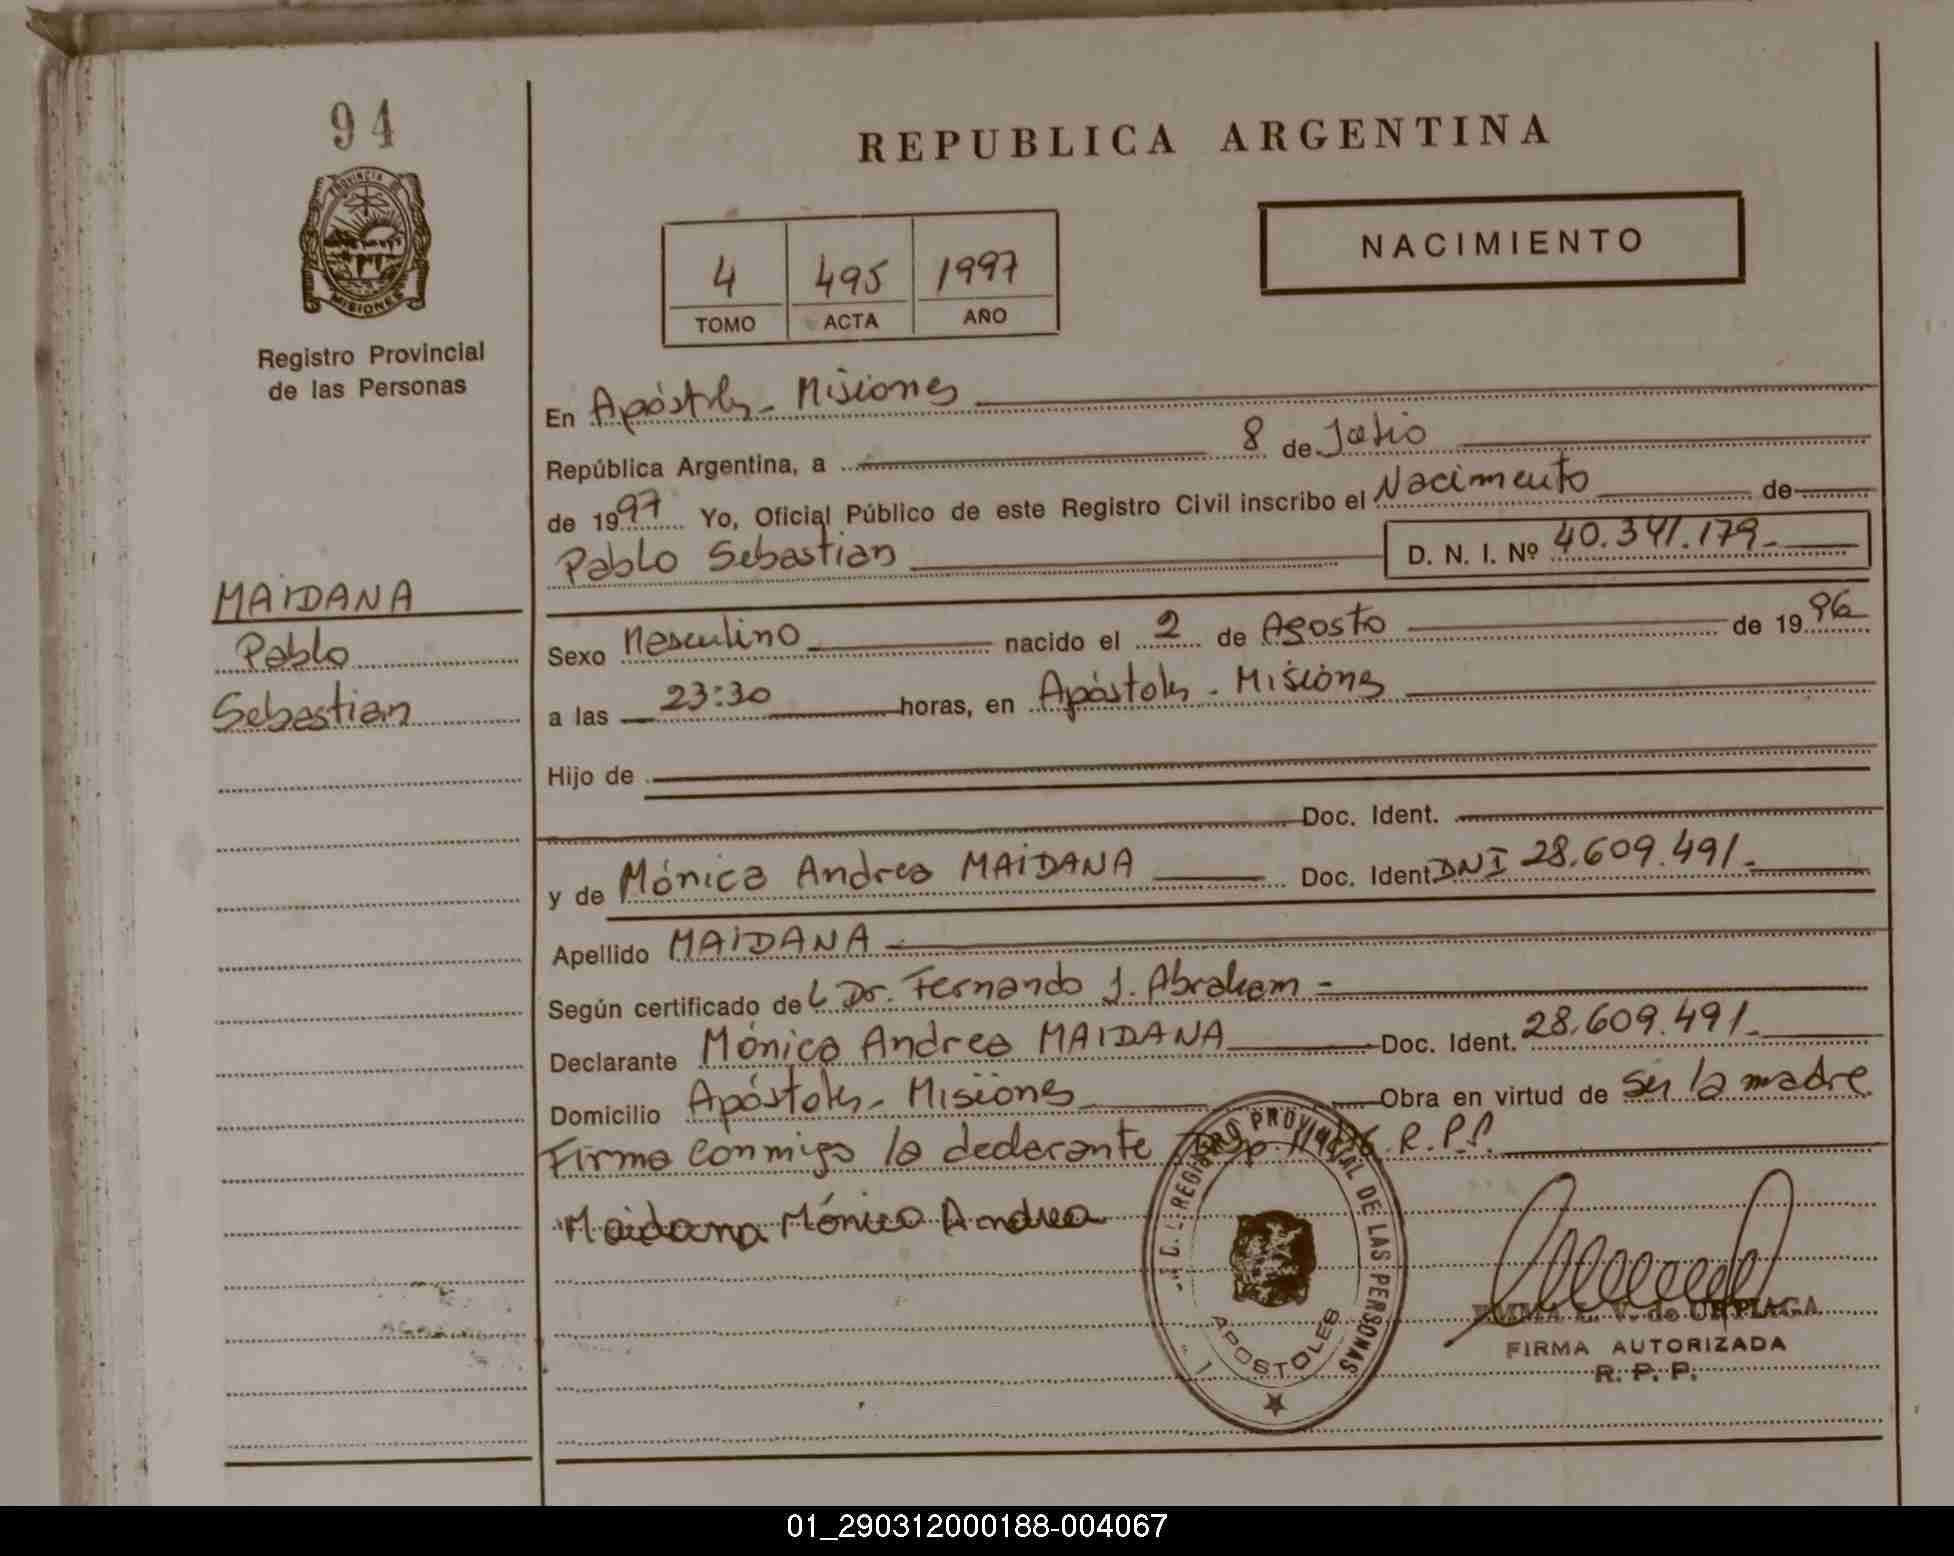 94
REPUBLICA ARGENTINA
PROVINCIA DE
MISIONES
NACIMIENTO
4 495 1997
TOMO ACTA AÑO
Registro Provincial
de las Personas
En Apóstoles - Misiones
República Argentina, a 8 de Julio
de 1997 Yo, Oficial Público de este Registro Civil inscribo el Nacimiento de
Pablo Sebastian D. N. I. Nº 40.341.179.-
MAIDANA
Pablo
Sebastian
Sexo Masculino nacido el 2 de Agosto de 1996
a las 23:30 horas, en Apóstoles - Misiones
Hijo de
Doc. Ident.
y de Mónica Andrea MAIDANA Doc. Ident DNI 28.609.491.-
Apellido MAIDANA
Según certificado del Dr. Fernando J. Abraham -
Declarante Mónica Andrea MAIDANA Doc. Ident. 28.609.491.-
Domicilio Apóstoles - Misiones Obra en virtud de ser la madre
Firma conmigo la declarante R.P.P.
Maidana Mónica Andrea
REGISTRO PROVINCIAL DE LAS PERSONAS
APOSTOLES
EMMA L. V. de URTIAGA
FIRMA AUTORIZADA
R. P. P.
01_290312000188-004067